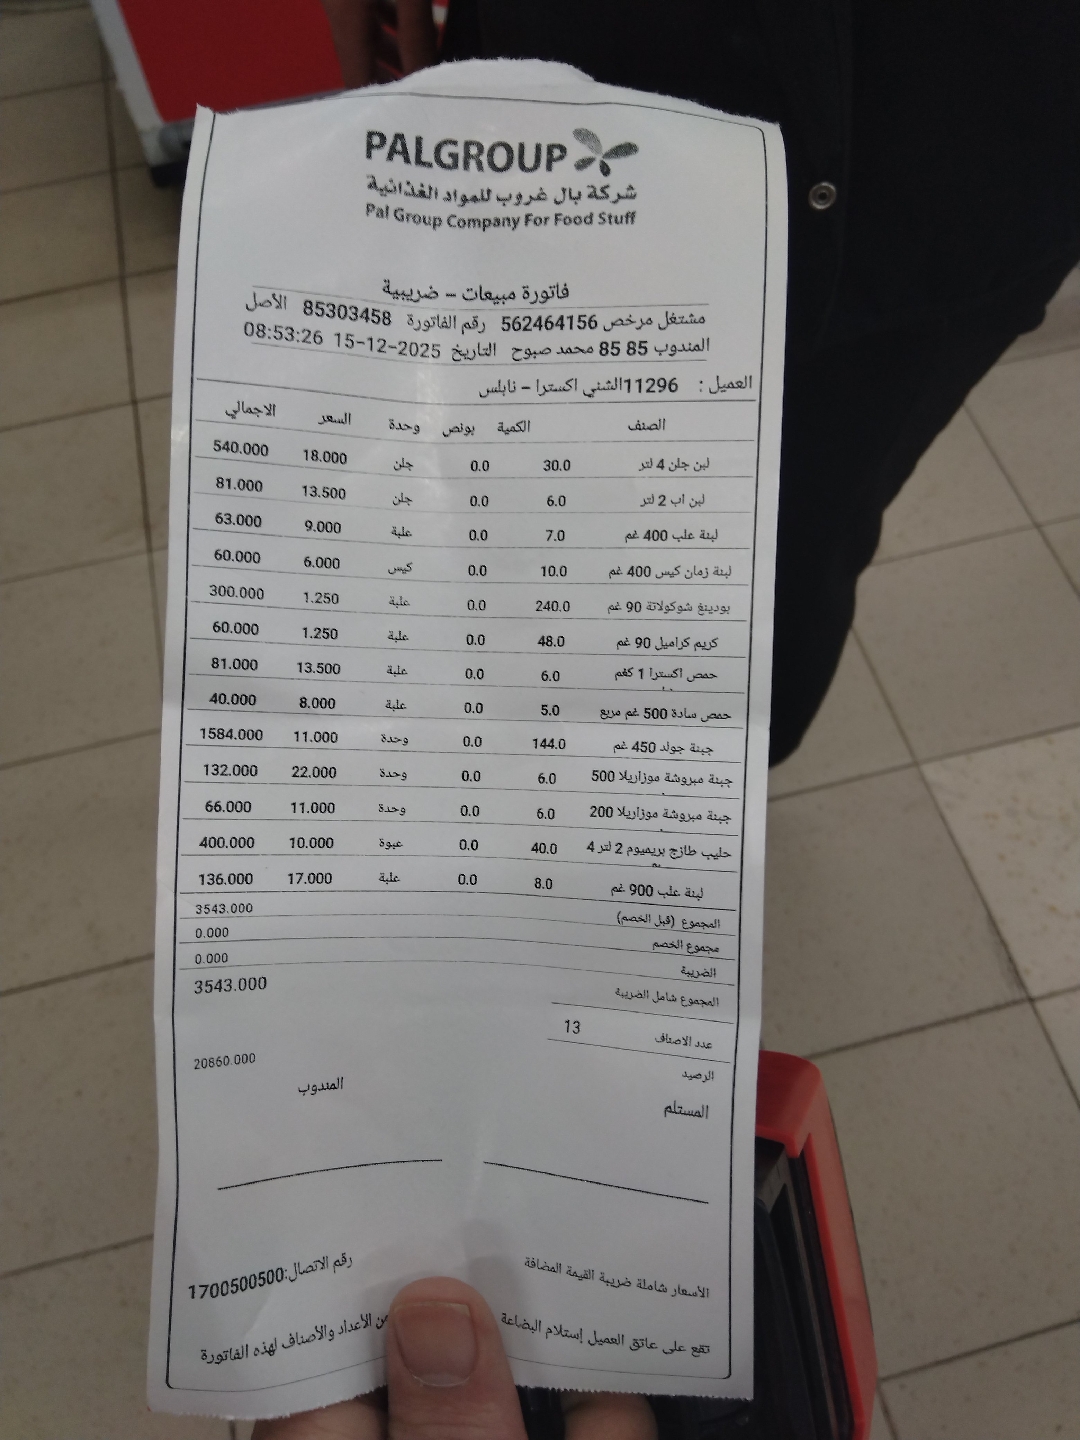 PALGROUP
شركة بال غروب للمواد الغذائية
Pal Group Company For Food Stuff
فاتورة مبيعات - ضريبية
مشتغل مرخص 562464156 رقم الفاتورة 85303458 الأصل
المندوب 85 85 محمد صبوح التاريخ 15-12-2025 08:53:26
العميل : 11296الشني اكسترا - نابلس
الصنف الكمية بونص وحدة السعر الاجمالي
لبن جلن 4 لتر 30.0 0.0 جلن 18.000 540.000
لبن اب 2 لتر 6.0 0.0 جلن 13.500 81.000
لبنة علب 400 غم 7.0 0.0 علبة 9.000 63.000
لبنة زمان كيس 400 غم 10.0 0.0 كيس 6.000 60.000
بودينغ شوكولاتة 90 غم 240.0 0.0 علبة 1.250 300.000
كريم كراميل 90 غم 48.0 0.0 علبة 1.250 60.000
حمص اكسترا 1 كغم 6.0 0.0 علبة 13.500 81.000
حمص سادة 500 غم مربع 5.0 0.0 علبة 8.000 40.000
جبنة جولد 450 غم 144.0 0.0 وحدة 11.000 1584.000
جبنة مبروشة موزاريلا 500 6.0 0.0 وحدة 22.000 132.000
جبنة مبروشة موزاريلا 200 6.0 0.0 وحدة 11.000 66.000
حليب طازج بريميوم 2 لتر 4 40.0 0.0 عبوة 10.000 400.000
لبنة علب 900 غم 8.0 0.0 علبة 17.000 136.000
المجموع (قبل الخصم) 3543.000
مجموع الخصم 0.000
الضريبة 0.000
المجموع شامل الضريبة 3543.000
عدد الاصناف 13
الرصيد 20860.000
المستلم المندوب
الأسعار شاملة ضريبة القيمة المضافة رقم الاتصال:1700500500
تقع على عاتق العميل إستلام البضاعة من الأعداد والأصناف لهذه الفاتورة